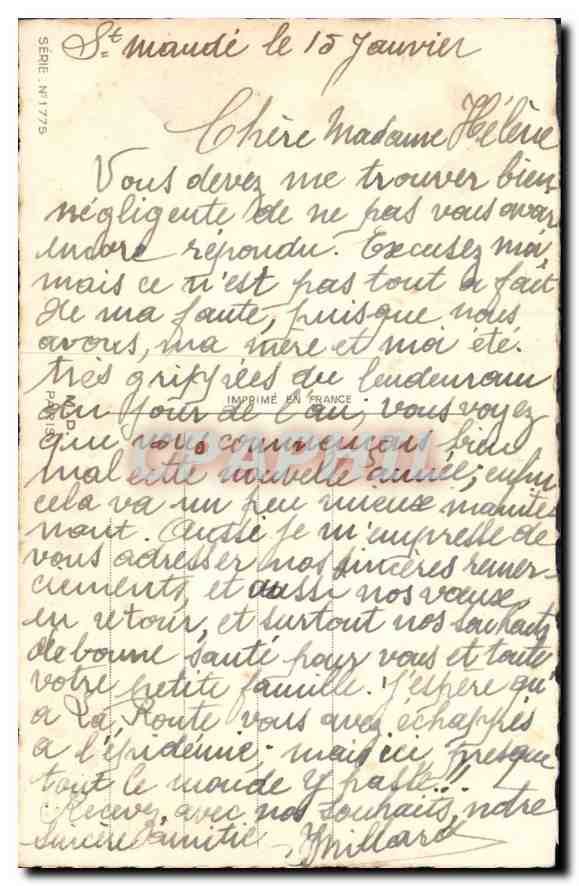 St mandé le 15 Janvier
SÉRIE: N° 1775
Chère Madame Hélène
Vous devez me trouver bien
négligente de ne pas vous avoir
encore répondu. Excusez moi
mais ce n'est pas tout a fait
de ma faute, puisque nous
avons, ma mère et moi été
très grippées du lendemain
du jour de l'an, vous voyez
IMPRIMÉ EN FRANCE
M.D
PARIS
que nous commençons bien
mal cette nouvelle année; enfin
CPAPHIL
cela va un peu mieux mainte
nant. Aussi je m'empresse de
vous adresser nos sincères remer-
ciements, et aussi nos vœux
en retour, et surtout nos souhaits
de bonne santé pour vous et toute
votre petite famille. J'espère qu'
a La Route vous avez échappés
a l'épidémie; mais ici presque
tout le monde y passe!!
Recevez avec nos souhaits, notre
sincère amitié